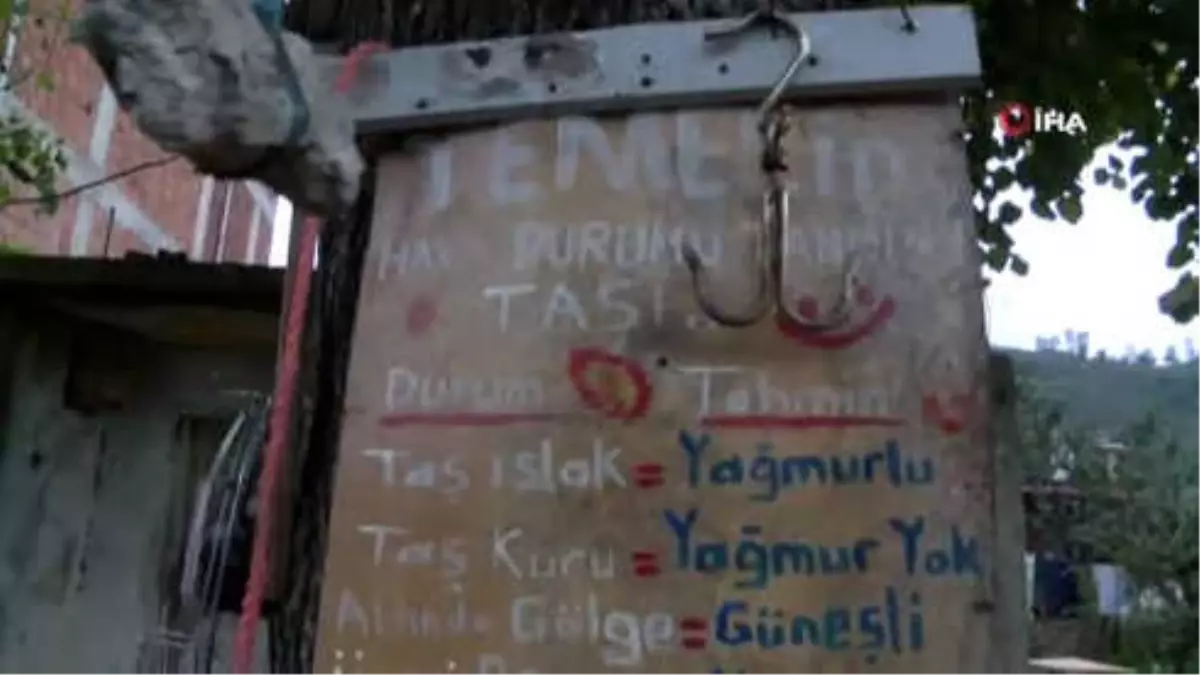 İHA
DURUMU
TAŞI
Durum Tahmin
Taş ıslak = Yağmurlu
Taş Kuru = Yağmur Yok
Altında Gölge = Güneşli